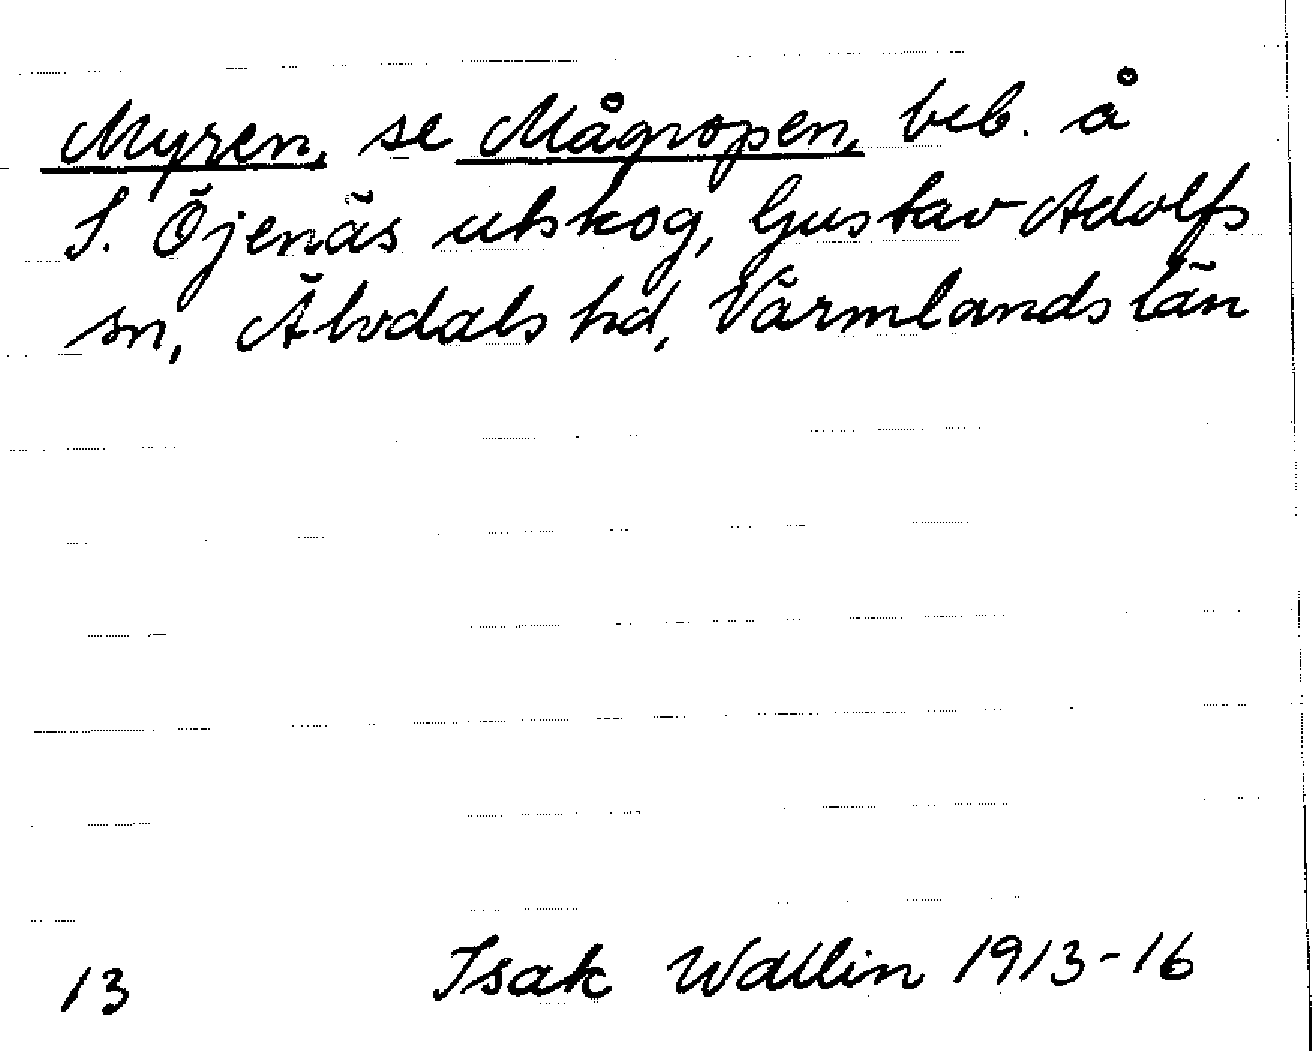 Myren, se Mågropen, beb. å
S. Öjenäs utskog, Gustav Adolfs
sn, Älvdals hd, Värmlands län
13 Isak Wallin 1913-16